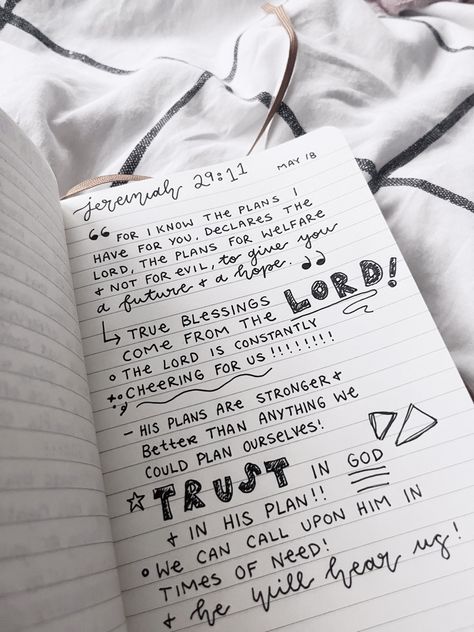 jeremiah 29:11 MAY 18
“ FOR I KNOW THE PLANS I
HAVE FOR YOU, DECLARES THE
LORD, THE PLANS FOR WELFARE
+ NOT FOR EVIL, to give you
a future + a hope. ”
↳ TRUE BLESSINGS
COME FROM THE LORD!
• THE LORD IS CONSTANTLY
CHEERING FOR US !!!!!!!!
- HIS PLANS ARE STRONGER +
BETTER THAN ANYTHING WE
COULD PLAN OURSELVES!
☆ TRUST IN GOD
+ IN HIS PLAN!!
• WE CAN CALL UPON HIM IN
TIMES OF NEED!
+ he will hear us!